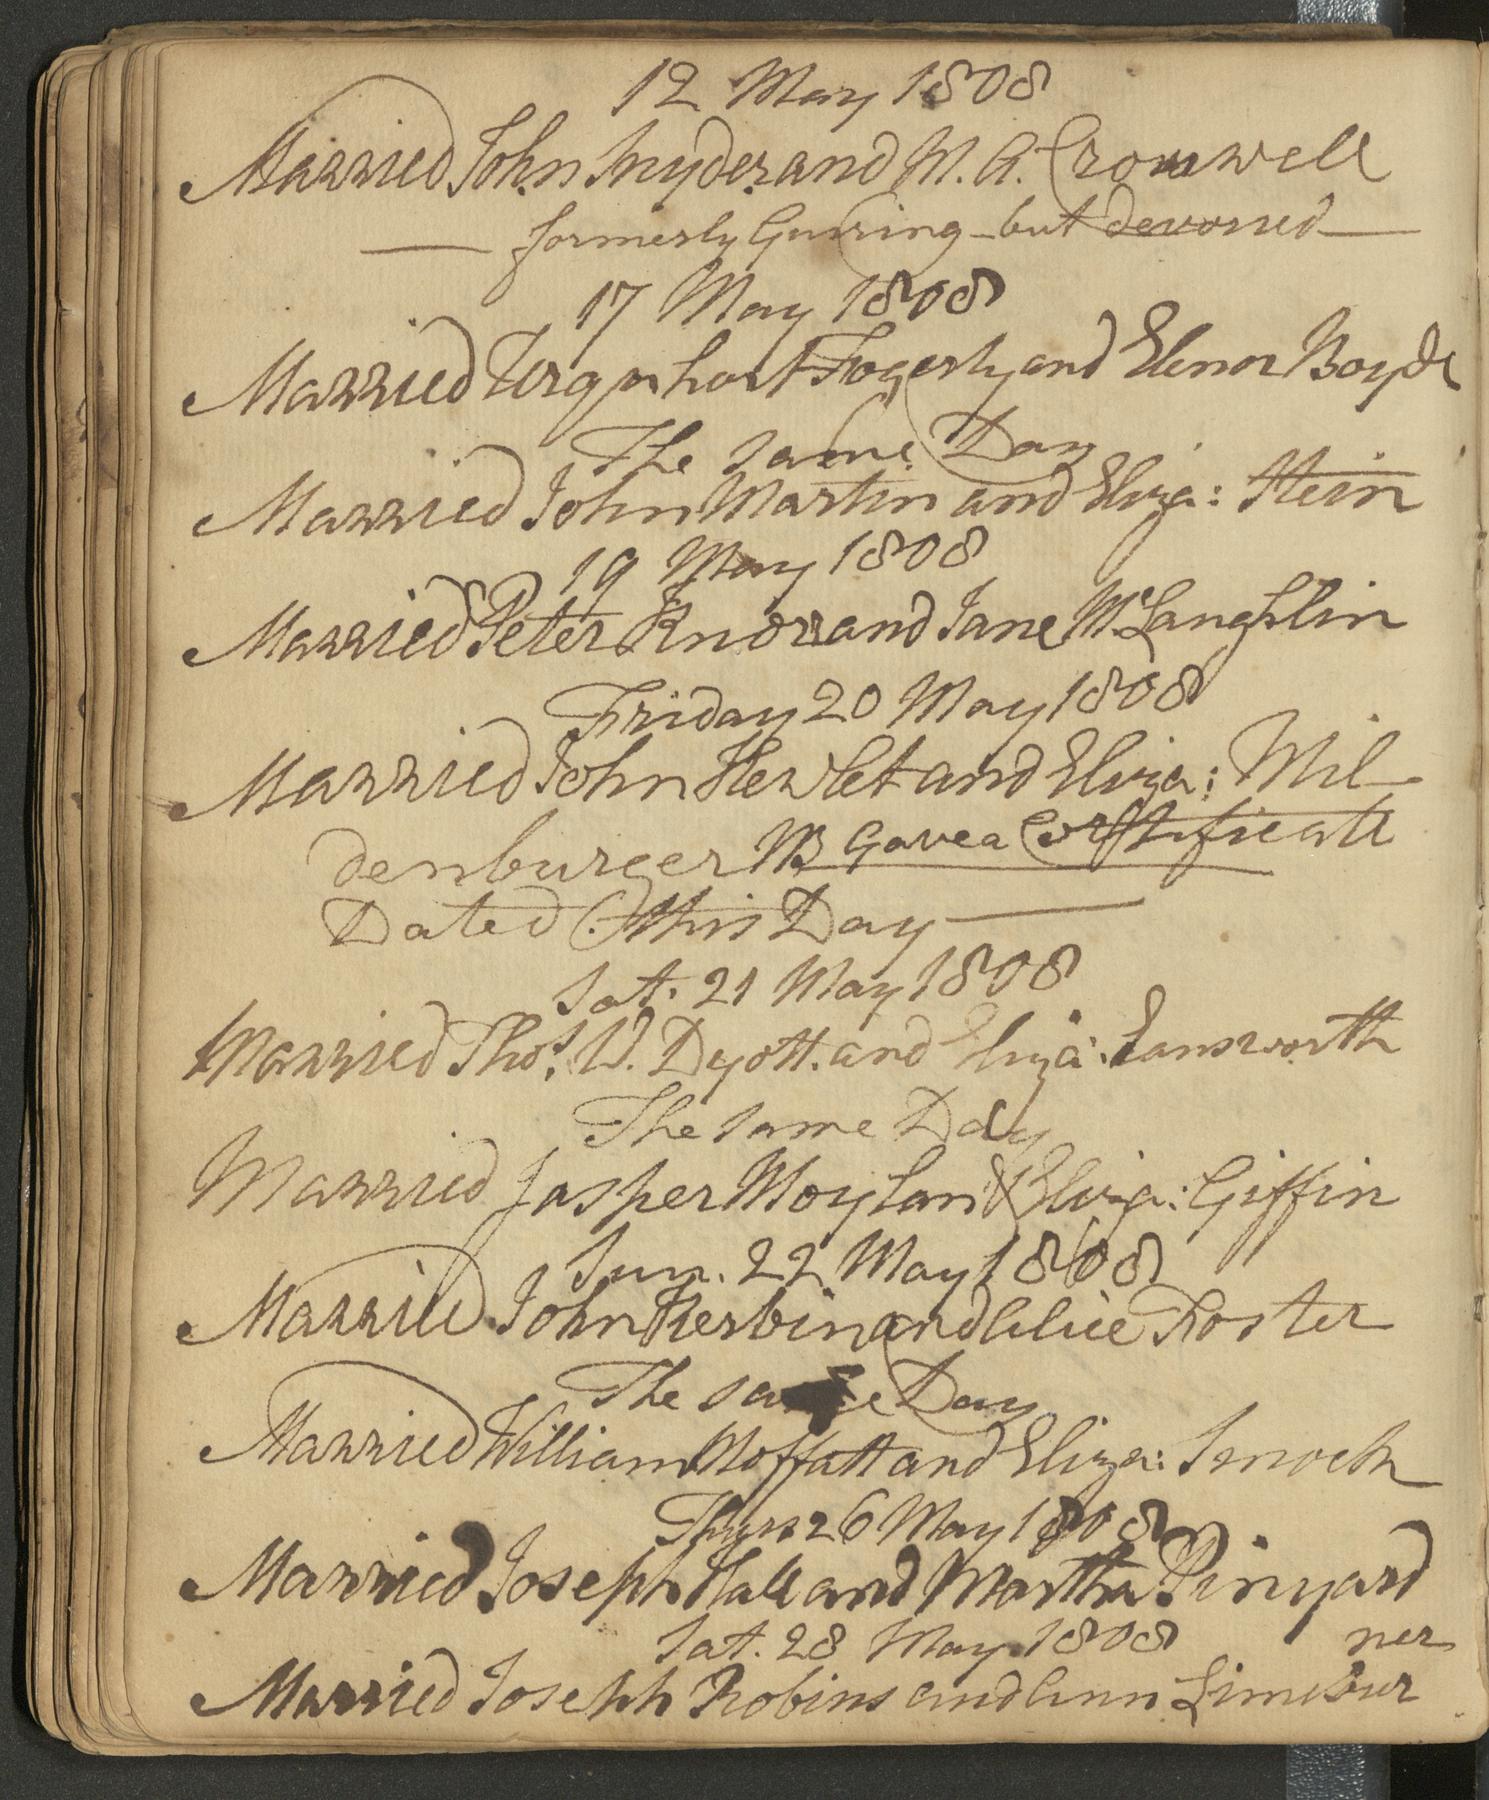 12 May 1808
Married John Snyder and M. A. Cromwell
formerly Guiring but devorsed
17 May 1808
Married Urquhart Fogerty and Elenor Boyde
The same Day
Married John Martin and Eliza: Stein
19 May 1808
Married Peter Knorr and Jane McLaughlin
Friday 20 May 1808
Married John Hewlet and Eliza: Mil
denburger NB Gave a Certificate
Dated this Day
Sat. 21 May 1808
Married Thos. W. Dyott. and Eliza: Eamsworth
The same Day
Married Jasper Moylan & Eliza: Giffin
Sun. 22 May 1808
Married John Kerbin and Alice Foster
The same Day
Married William Moffatt and Eliza: Smock
Thurs 26 May 1808
Married Joseph Hall and Martha Pinyard
Sat. 28 May 1808
ner
Married Joseph Robins and Ann